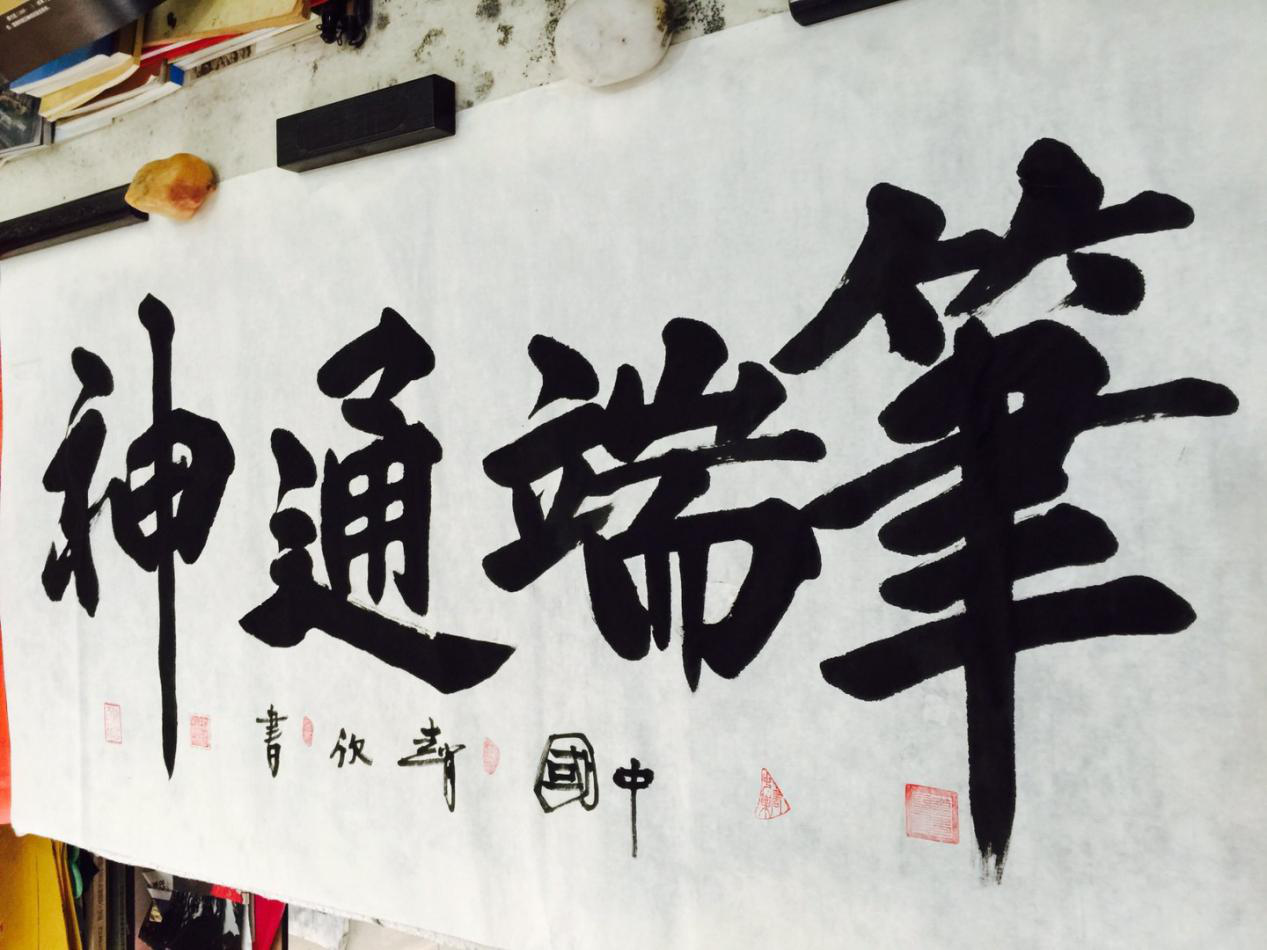 筆端通神
中國趙欣書